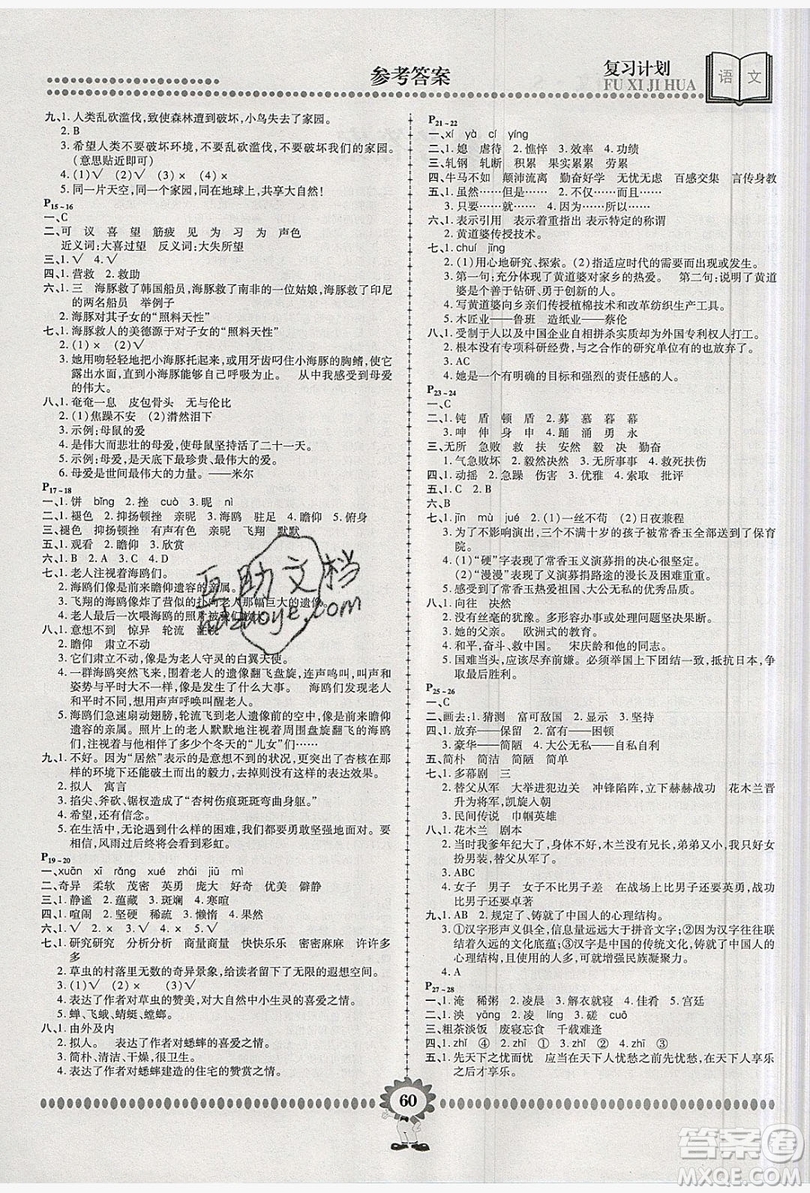 参考答案
复习计划
FU XI JI HUA
语文
九、1. 人类乱砍滥伐,致使森林遭到破坏,小鸟失去了家园。
2. B
3. 希望人类不要破坏环境,不要乱砍滥伐,给我们一个家园。
(意思贴近即可)
4. (1)√ (2)× (3)√ (4)×
5. 同一片天空,同一个家园,在地球上,共享大自然!
P15-16
一、C
二、可 议 喜 望 筋疲 见 为 习 为 声色
近义词:大喜过望 反义词:大失所望
三、1. √ 2. √
四、1. 营救 2. 救助
六、1. 三 海豚救了韩国船员, 海豚救了南非的一位姑娘,海豚救了印尼
的两名船员 举例子
2. 海豚对其子女的“照料天性”
七、1. 海豚救人的美德源于对子女的“照料天性”
2. (1)× (2)√ (3)×
3. 她用吻轻轻地把小海豚托起来,或用牙齿叼着小海豚的胸鳍,使它
露出水面,直到小海豚能够自己呼吸为止。 从中我感受到母爱
的伟大。
八、1. 奄奄一息 皮包骨头 无与伦比
2. (1)焦躁不安 (2)潸然泪下
3. 示例:母鼠的爱
4. 是伟大而悲壮的母爱,使它坚持了二十一天。
5. 示例:真爱,是天底下最珍贵、最伟大的爱。
6. 母爱是世间最伟大的力量。——米尔
P17-18
一、1. 饼 bǐng 2. 挫 cuò 3. 昵 nì
二、1. 褪色 2. 抑扬顿挫 亲昵 3. 海鸥 驻足 4. 瞻仰 5. 俯身
三、褪色 抑扬顿挫 有声有色 飞翔 默默
五、1. 观看 2. 瞻仰 3. 欣赏
六、1. B 2. A 3. C 4. D
七、1. 老人注视着海鸥们。
2. 海鸥们瞻仰遗容的亲属。
3. 飞翔的海鸥像炸了营似的扑向老人那幅巨大的遗像。
4. 老人最后一次喂海鸥的照片
八、1. 意想不到 惊异 轮流
2. 瞻仰 肃立不动
3. 它们肃立不动,像是为老人守灵的白翼天使。
4. 一群海鸥突然飞来,围着老人的遗像翻飞盘旋,连声鸣叫,叫声和
姿势与平时大不一样,像是发生了什么大事。 海鸥们发现老人
和平时不一样,显得焦急。
5. 海鸥们急速扇动翅膀,轮流飞到老人遗像前的空中,像是前来瞻仰
遗容的亲属。 老人默默地注视着周围盘旋翻飞的海鸥们,注视
着与他相伴了多少个冬天的“儿女”们……
九、1. 不好。因为“居然”表示的是没有想到,更加突出了杏核在
那样的环境下还能破土而出的毅力,去掉就没有这样的表达效果。
2. 拟人 寓言
3. 掐尖、斧砍、锯杈造成了“杏树伤痕斑斑弯曲身躯”。
4. 希望,还有信念。
5. 在生活中,无论遇到什么样的困难,我们都要勇敢地面对。要相
信,风雨过后终将会看到彩虹。
P19-20
一、xuān xī rǎng xué zhái niè
二、奇异 柔软 茂密 英勇 庞大 好奇 优美 僻静
三、1. 静谧 2. 蕴藏 3. 斑斓 4. 寒暄
四、1. 喧闹 2. 坚硬 3. 稀疏 4. 懒惰 5. 拥挤
六、1. √ 2. × 3. √
七、1. 研究研究 分析分析 商量商量 快快乐乐 密密麻麻 许许多
多
2. 草虫的村落里无数的奇异景象,给读者留下了无限的遐想空间。
3. (1)√ (2)× (3)√
4. 表达了作者对草虫的赞美,对大自然中小生灵的喜爱之情。
5. 蝉、飞蛾、蜻蜓、螳螂。
八、1. 由外及内
2. 拟人。 表达了作者对蟋蟀的喜爱之情。
3. 简朴、清洁、干燥,很卫生。
4. 表达了作者对蟋蟀建造的住宅的赞赏之情。
P21-22
一、xí yà cí yíng
二、1. 媳 虐待 2. 憔悴 3. 效率 4. 功绩
三、轧钢 轧断 积累 果实累累 劳累
四、牛马不如 颠沛流离 勤奋好学 无忧无虑 百感交集 言传身教
五、1. 虽然……但是…… 2. 不仅……而且……
3. 只要……就…… 4. 因为……所以……
六、1. 表示引用 表示着重指出 表示特定的称谓
2. 黄道婆传授技术。
七、1. chuí jīng
2. (1)用心地研究、探索。(2)指适应一定的需要而出现或发生。
3. 第一句:充分体现了黄道婆对家乡的热爱。 第二句:说明了黄道
婆是个善于钻研、勇于创新的人。
4. 黄道婆向乡亲们传授植棉技术和改革纺织生产工具。
5. 木匠业——鲁班 造纸业——蔡伦
八、1. 受制于人以及中国企业自相拼杀实质却为外国专利权人打工。
2. 根本没有专项科研经费,与之合作的研究单位有可能撤出。
3. AC
4. 她是一个有明确的目标和强烈的责任感的人。
P23-24
一、C
二、1. 钝 盾 顿 盾 2. 募 慕 幕 幕
3. 呻 伸 身 申 4. 踊 涌 涌 勇
三、无所 急败 救 扶 安然 毅 决 勤奋
1. 气急败坏 2. 毅然决然 3. 无所事事
四、1. 动摇 2. 急躁 3. 伤害 4. 索取 批评
五、1. C 2. B
六、B
七、1. jīn mù jué 2. (1)一丝不苟 (2)日夜兼程
3. 为了不影响演出,三个不满十岁的孩子被常香玉全部送进了保育
院。
4. (1)“硬”字表现了常香玉义演募捐的决心很坚定。
(2)“漫漫”表现了义演募捐路途的漫长与艰辛。
5. 感受到了常香玉热爱祖国、无私奉献的高尚品质。
八、1. 向往 决然
2. 没有丝毫的犹豫。 多形容办事或下结论坚决果断。
3. 她的父亲。 欧洲式的教育。
4. 和平,奋斗,救中国。 宋庆龄和他的同志。
5. 国难当头,应该摒弃前嫌,希望举国上下团结一致,争取抗战早日
取得最后胜利。
P25-26
一、C
二、画去:1. 猜测 富可敌国 2. 显示 3. 坚持
四、1. 放弃——保留 2. 富有——贫困
3. 豪华——简陋 4. 大公无私——自私自利
五、简朴 简洁 简陋 简易
七、1. 多幕剧 三
2. 替父从军! 巾帼不让须眉 冲锋陷阵,立下赫赫战功 花木兰晋
升为将军,凯旋入朝
3. 民间传说 巾帼英雄
八、1. 花木兰 剧本
2. 当时我爹年纪大了,木兰没有哥哥,弟弟又小,木兰不得已女
扮男装,替父从军。
3. ABC
4. 女子 男子 女子不比男子差,甚至可能比男子还要厉害。
九、1. AB 2. 规定了、铸就了中国人的心理结构。
3. ①汉字形声义俱全,信息量远远大于拼音文字;②汉字承载着源远
流长的文化底蕴;③汉字是中国的传统文化,铸就了中国人的
心理结构。
4. A
P27-28
一、1. 淹 稀粥 2. 凌晨 3. 解冻 4. 佳肴 5. 宫廷
二、1. 泱 yāng 2. 凝 íng 3. 磋 cuō
三、粗茶淡饭 废寝忘食 千载难逢
四、1. zhǐ ① 2. zhǐ ③ 3. zhǐ ② 4. zhǐ ④
五、1. 先天下之忧而忧 应当在天下人忧愁之前先忧愁,在天下人享乐
之后才享乐。
60
互助文档
huzuoye.com
答案圈
MXQE.COM